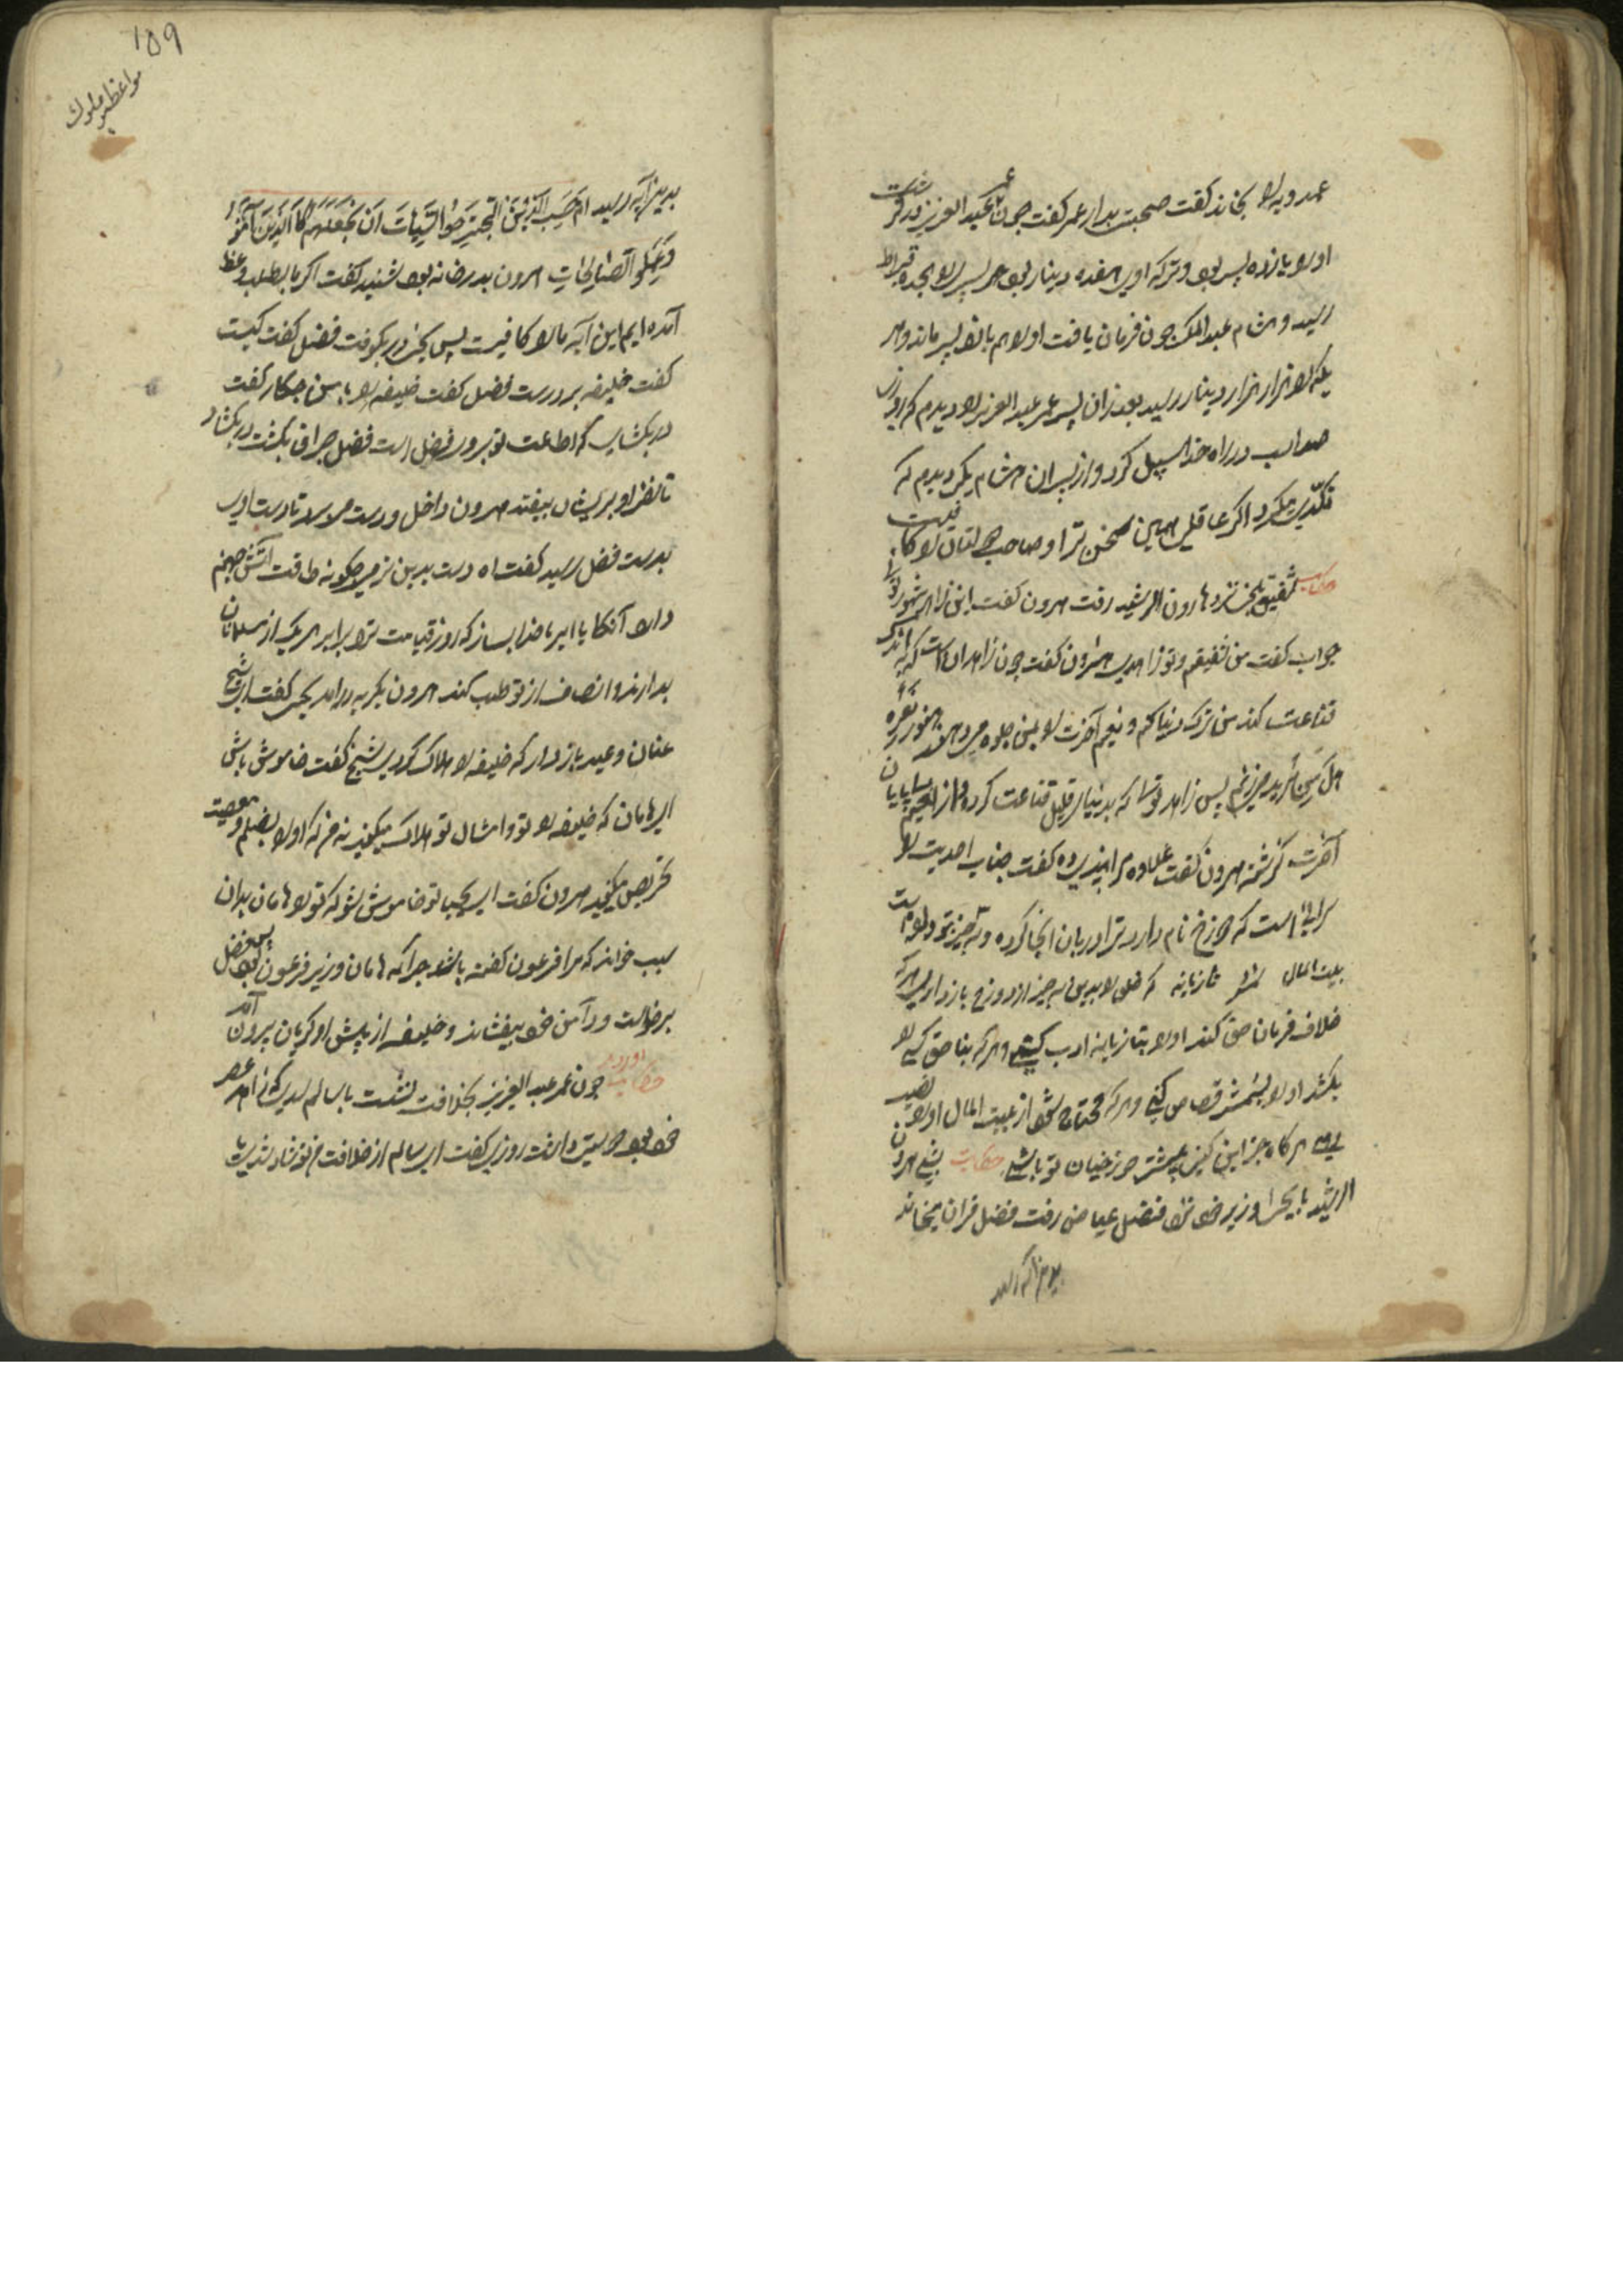 عمرو یه را بخواند گفت صحبت بدار عمر گفت چون عمر عبد العزیز در گذشت
او را یازده پسر بود و ترکه اوی هفده دینار بود هر پسر را هجده قیراط
رسید و هشام عبد الملک چون فرمان یافت او را هم یازده پسر ماند و هر
یکی را هزار هزار دینار رسید بعد از آن پسر عمر عبد العزیز را دیدم که روزی
صد اسب در راه خدا سبیل کرد و از پسران هشام یکی دیدم که
تکدی میکرد اگر عاقلی همین سخن ترا و صاحب دولتان را کافیست
حکایت شقیق بلخی نزد هارون الرشید رفت هرون گفت این زاهد مشهور توئی
جواب گفت من شقیقم و تو زاهدی هرون گفت چون زاهد آن است که به اندک
قناعت کند من ترک دنیا کنم و نعیم آخرت را بمن جلوه می دهند
پس زاهد توئی که بدنیای قلیل قناعت کرده و از نعیم بی پایان
آخرت گذشته هرون گفت علاوه مرا پندی ده گفت جناب احدیت را
سرائی است که دوزخ نام دارد ترا دربان آنجا کرده و سه چیز بتو داده است
بیت المال شمشیر تازیانه که خلق را بدین سه چیز از دوزخ باز داری هر که
خلاف فرمان حق کند او را بتازیانه ادب کنی و هر که بناحق کسی را
بکشد او را بشمشیر قصاص کنی و هر که محتاج شود از بیت المال او را نصیب
دهی هرگاه جز این کنی پیشتر دوزخیان تو باشی حکایت شبی هرون
الرشید با یحیی وزیر خود نزد فضل عیاض رفت فضل قران میخواند
۱۵۹
مواعظ ملوک
بدین آیه رسید ام حَسِبَ الَّذِینَ اجْتَرَحُوا السَّیِّآتِ اَنْ نَجْعَلَهُمْ کَالَّذِینَ آمَنُوا
وَعَمِلُوا الصّالِحاتِ هرون بدر خانه بود شنید گفت اگر ما بطلب وعظ
آمده ایم این آیه ما را کافیست پس یحیی در بکوفت فضل گفت کیست
گفت خلیفه بر درست فضل گفت خلیفه را با من چکار گفت
در بکشای که اطاعت تو بر ور فرض است فضل چراغ بکشت در بکشاد
تا نظر او بریشان بیفتد هرون داخل و دست می سود تا دست اوی
بدست فضل رسید گفت اه دست بدین نرمی چگونه طاقت آتش جهنم
دارد آنگاه یا امیر با خدا بساز که روز قیامت ترا برابر هر یک از مسلمانان
بدارند و انصاف از تو طلب کنند هرون بگریه درامد یحیی گفت ای شیخ
عنان وعید باز دار که خلیفه را هلاک کردی شیخ گفت خاموش باش
ای هامان که خلیفه را تو و امثال تو هلاک میکنید نه من که او را بظلم و معصیت
تحریص میکنید هرون گفت ای یحیی تو خاموش شو که تو را هامان بدان
سبب خواند که مرا فرعون گفته باشد چرا که هامان وزیر فرعون بود پس فضل
برخاست و دامن خود بیفشاند و خلیفه از پیش او گریان بیرون آمد
حکایت آورده چون عمر عبد العزیز بخلافت نشست با سالم سدی که زاهد عصر
خود بود دوستی داشت روزی گفت ای سالم از خلافت من تو شاد شدی یا